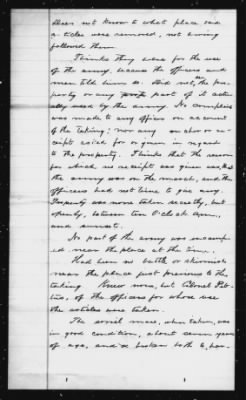 does not know to what place said
articles were removed, not having
followed them.
Thinks they were for the use
of the army, because the officers and
men told him so. Did not see the pro-
perty or any part of it ac-
tually used by the army. No complaint
was made to any officer on account
of the taking; nor any voucher or re-
ceipt asked for or given in regard
to the property. Thinks that the reason
for which no receipt was given was, that
the army was on the march, and the
officers had not time to give any.
Property was none taken secretly, but
openly, between ten O'clock a.m.,
and sunset.
No part of the army was encamp-
ed near the place at the time.
Had been no battle or skirmish
near the place just previous to the
taking. Knew none, but Colonel
of the officers for whose use
the articles were taken.
The sorrel mare, when taken, was
in good condition, about seven years
of age, and broken both to har-